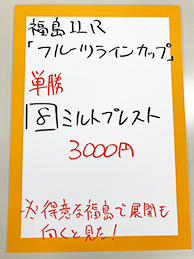 福島11R
「フルーツラインカップ」
単勝
8 ミルトプレスト
3000円
※得意な福島で展開も
向くと見た!